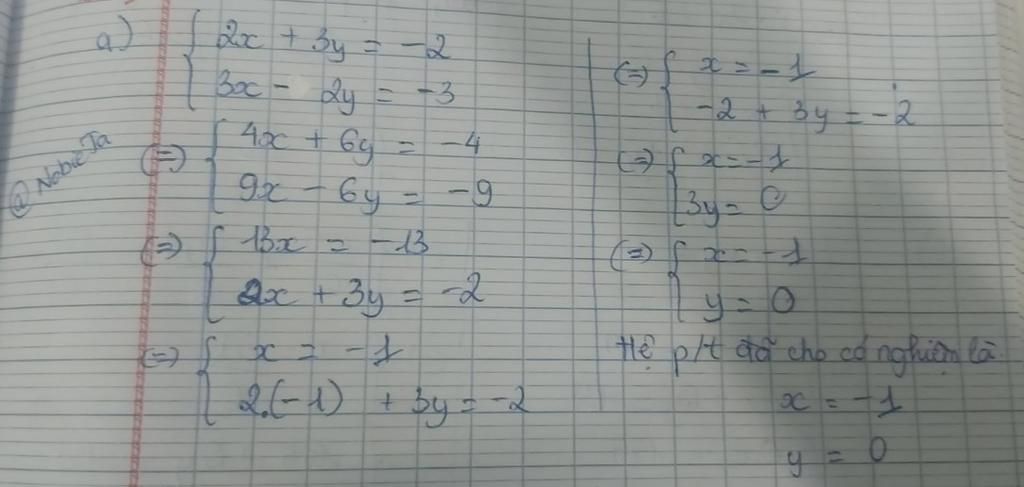 a) { 2x + 3y = -2
3x - 2y = -3
@NobieTa
(=) { 4x + 6y = -4
9x - 6y = -9
(=) { 13x = -13
2x + 3y = -2
(=) { x = -1
2.(-1) + 3y = -2
(=) { x = -1
-2 + 3y = -2
(=) { x = -1
3y = 0
(=) { x = -1
y = 0
Hệ p/t đã cho có nghiệm là
x = -1
y = 0